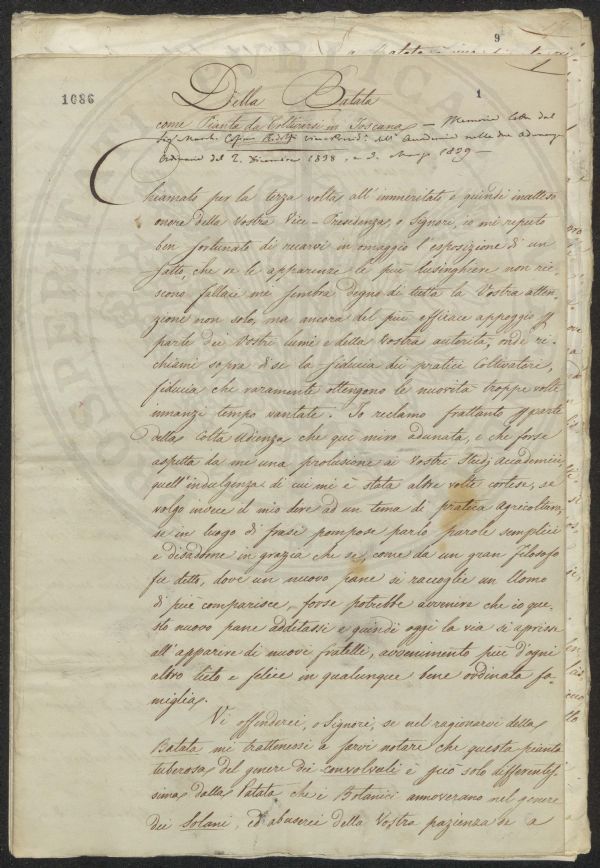 9
1086
1
Della Batata
come Pianta da Coltivarsi in Toscana — Memoria letta dal
Sig. March. Cosimo Ridolfi Vice Presid. dell' Accademia nelle due adunanze
Ordinarie del 2. Dicembre 1838, e 3. Marzo 1839 —
Chiamato per la terza volta all' immeritato e quindi inatteso
onore della Vostra Vice-Presidenza, o Signori, io mi reputo
ben fortunato di recarvi in omaggio l'esposizione di un
fatto, che se le apparenze le più lusinghiere non rie-
scono fallaci mi sembra degno di tutta la Vostra atten-
zione non solo, ma ancora del più efficace appoggio
parte dei Vostri lumi e della Vostra autorità, onde ri-
chiami sopra di se la fiducia dei pratici Coltivatori,
fiducia che raramente ottengono le novità troppe volte
innanzi tempo vantate. Io reclamo frattanto parte
della Colta Udienza che quì miro adunata, e che forse
aspetta da me una prolusione ai Vostri Studj Accademici
quell'indulgenza di cui mi è stata altre volte cortese, se
volgo invece il mio dire ad un tema di pratica Agricoltura,
se in luogo di frasi pompose parlo parole semplici
e disadorne in grazia che se, come da un gran Filosofo
fu detto, dove un nuovo pane si raccoglie un Uomo
di più comparisce, forse potrebbe avvenire che io que-
sto nuovo pane additassi e quindi oggi la via si aprisse
all' apparire di nuovi fratelli, avvenimento più d'ogni
altro lieto e felice in qualunque bene ordinata fa-
miglia.
Vi offenderei, o Signori, se nel ragionarvi della
Batata mi trattenessi a farvi notare che questa pianta
tuberosa del genere dei convolvuli è più solo differentis-
sima dalla Patata che i Botanici annoverano nel genere
dei solani, ed abuserei della Vostra pazienza se a